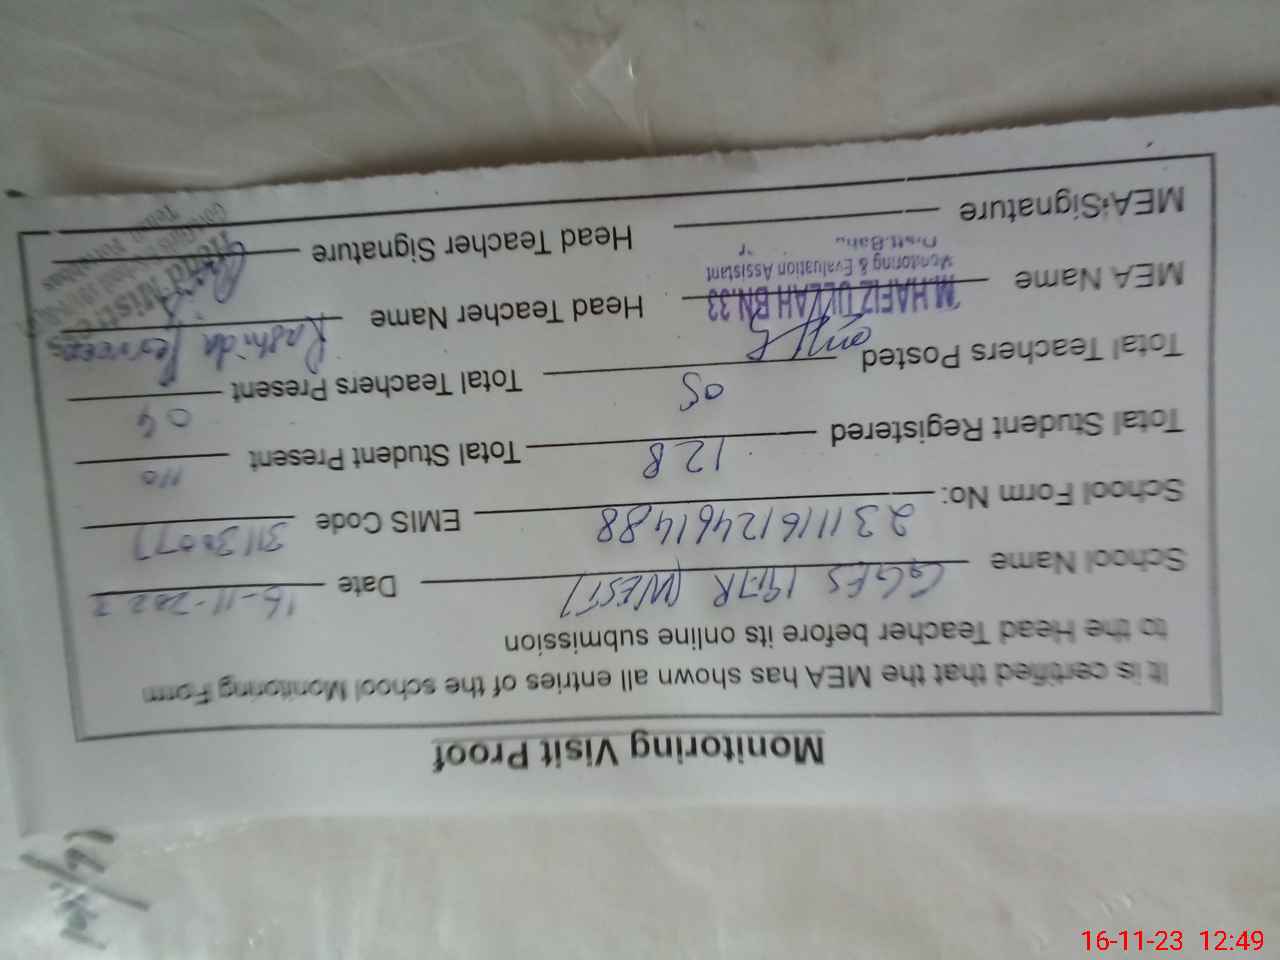 Monitoring Visit Proof
It is certified that the MEA has shown all entries of the school Monitoring Form
to the Head Teacher before its online submission
School Name GGES 19FR (WEST) Date 16-11-2023
School Form No: 23111612461488 EMIS Code 31130077
Total Student Registered 128 Total Student Present 110
Total Teachers Posted 05 Total Teachers Present 04
MEA Name M.HAFIZ ULLAH BN.33 Head Teacher Name Rashida Perveen
Monitoring & Evaluation Assistant
MEA Signature Head Teacher Signature
Head Mistress
16-11-23 12:49